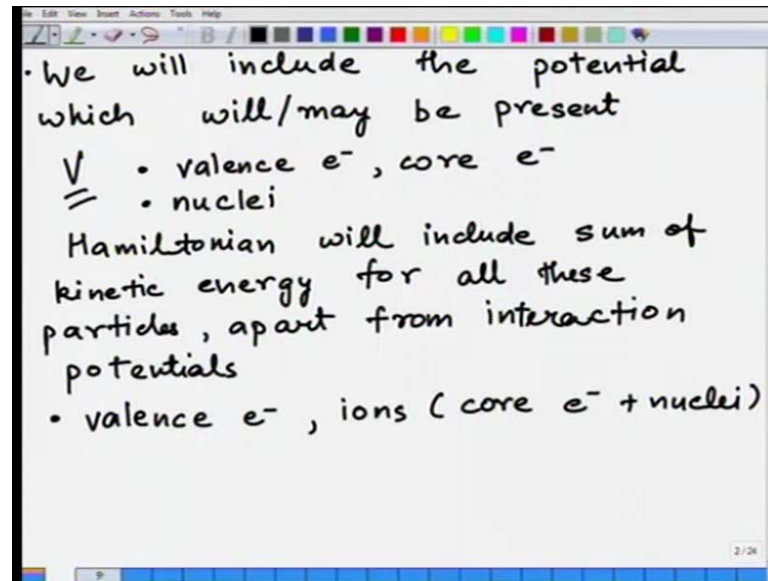 File Edit View Insert Actions Tools Help
• We will include the potential
which will/may be present
V • valence e⁻, core e⁻
• nuclei
Hamiltonian will include sum of
kinetic energy for all these
particles, apart from interaction
potentials
• valence e⁻, ions (core e⁻ + nuclei)
2/24